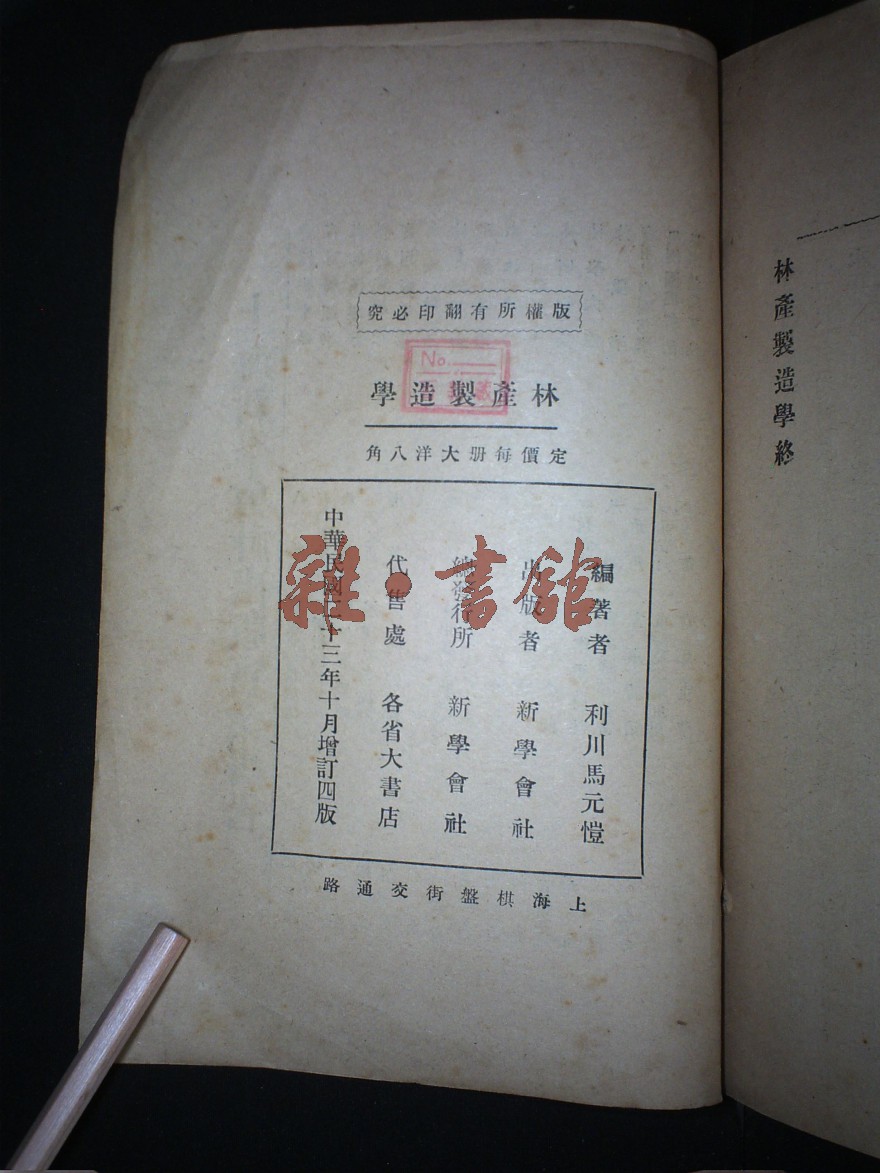 林產製造學終
版權所有翻印必究
No.
林產製造學
定價每册大洋八角
編著者 利川馬元愷
出版者 新學會社
總發行所 新學會社
代售處 各省大書店
中華民國二十三年十月增訂四版
上海棋盤街交通路
雜·書舘